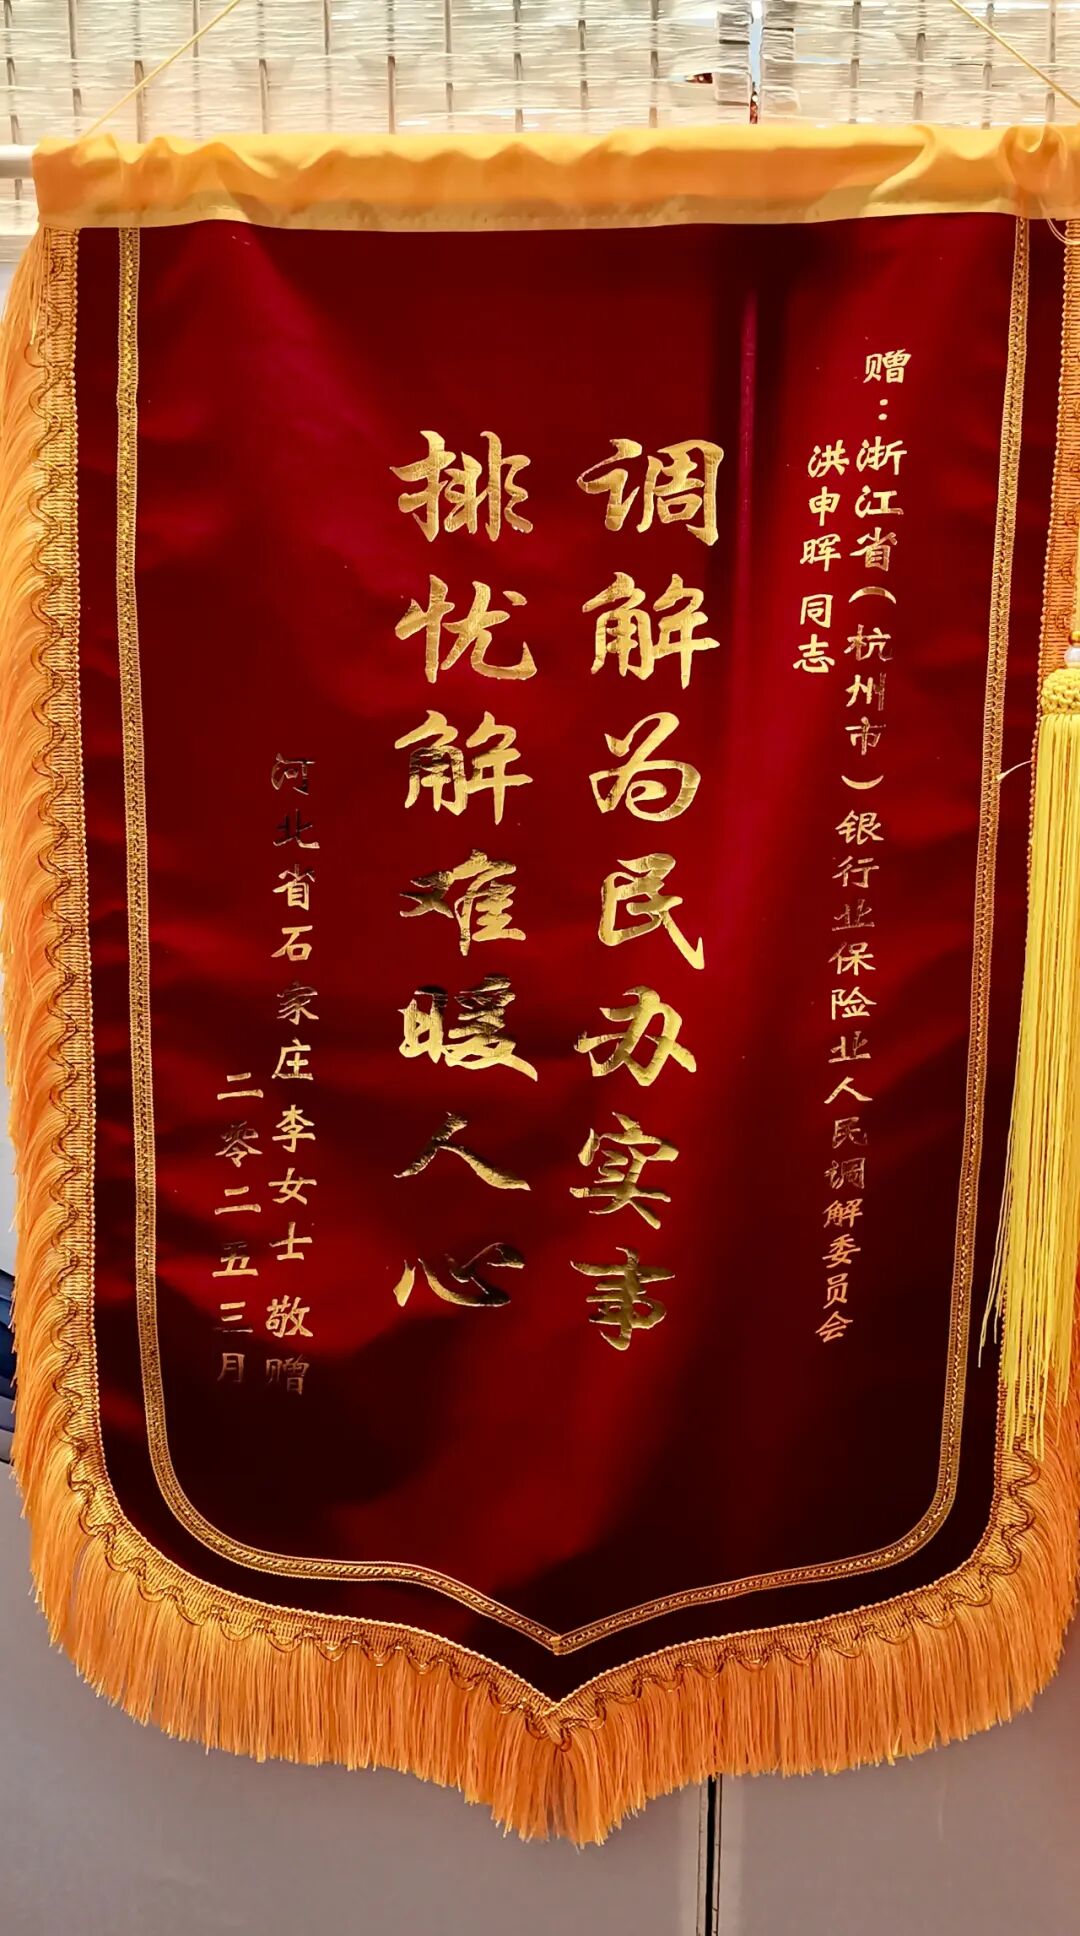 赠：浙江省（杭州市）银行业保险业人民调解委员会
洪申晖 同志
调解为民办实事
排忧解难暖人心
河北省石家庄李女士 敬赠
二零二五三月